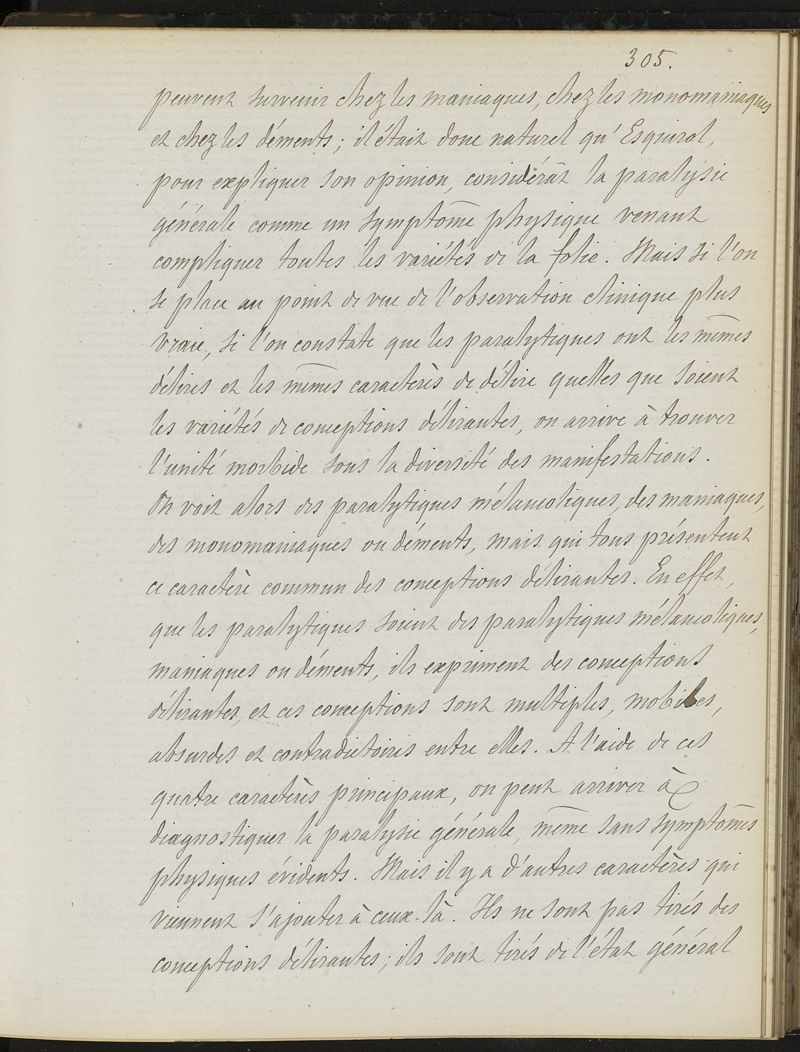 305.
peuvent survenir chez les maniaques, chez les monomaniaques
et chez les déments ; il était donc naturel qu'Esquirol,
pour expliquer son opinion, considérât la paralysie
générale comme un symptôme physique venant
compliquer toutes les variétés de la folie. Mais si l'on
se place au point de vue de l'observation clinique plus
vraie, si l'on constate que les paralytiques ont les mêmes
délires et les mêmes caractères de délire quelles que soient
les variétés de conceptions délirantes, on arrive à trouver
l'unité morbide sous la diversité des manifestations.
On voit alors des paralytiques mélancoliques, des maniaques,
des monomaniaques ou déments, mais qui tous présentent
ce caractère commun des conceptions délirantes. En effet,
que les paralytiques soient des paralytiques mélancoliques,
maniaques ou déments, ils expriment des conceptions
délirantes, et ces conceptions sont multiples, mobiles,
absurdes et contradictoires entre elles. A l'aide de ces
quatre caractères principaux, on peut arriver à
diagnostiquer la paralysie générale, même sans symptômes
physiques évidents. Mais il y a d'autres caractères qui
viennent s'ajouter à ceux-là. Ils ne sont pas tirés des
conceptions délirantes ; ils sont tirés de l'état général